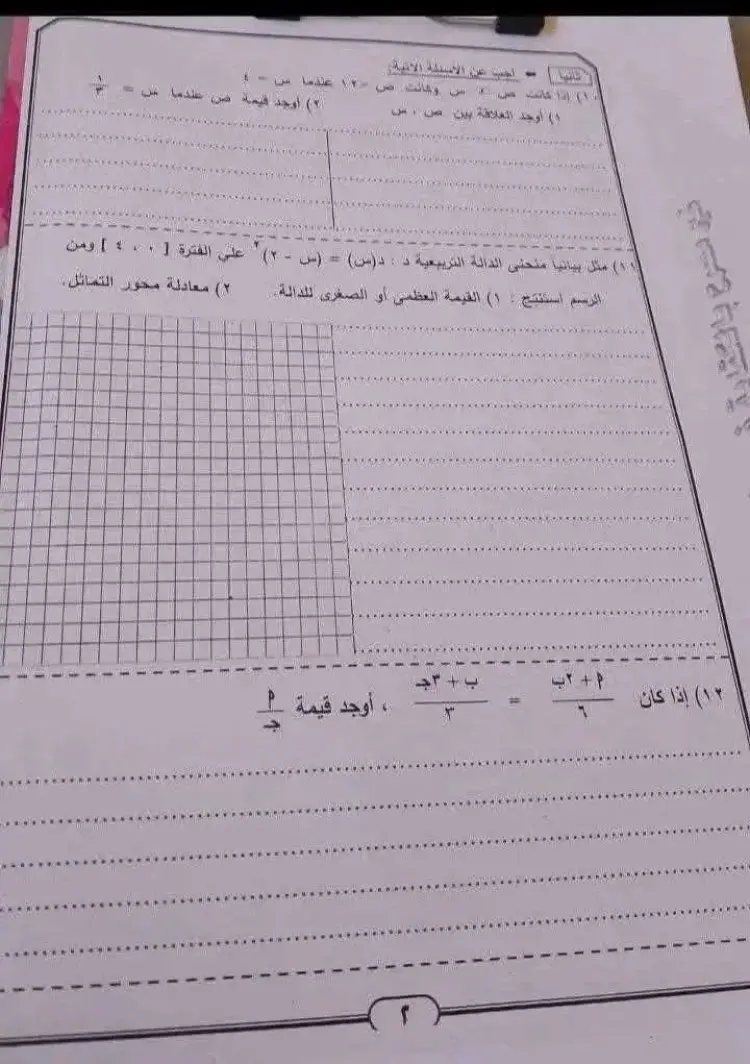 ثانيا ⬅ أجب عن الأسئلة الآتية:
١٠) إذا كانت ص ∝ س وكانت ص = ١٢ عندما س = ٤
١) أوجد العلاقة بين ص ، س ٢) أوجد قيمة ص عندما س = ١/٣
١١) مثل بيانيا منحنى الدالة التربيعية د : د(س) = (س - ٢)٢ على الفترة [٠ ، ٤] ومن
الرسم استنتج : ١) القيمة العظمى أو الصغرى للدالة. ٢) معادلة محور التماثل.
١٢) إذا كان (أ + ٢ب)/٦ = (ب + ٣جـ)/٣ ، أوجد قيمة أ/جـ
٢